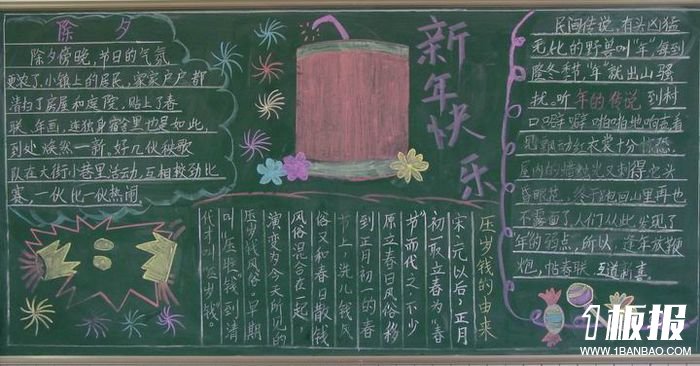 除夕
除夕傍晚，节日的气氛
更浓了，小镇上的居民，家家户户都
清扫了房屋和庭院，贴上了春
联、年画，连独身宿舍里也是如此，
到处焕然一新。好几伙秧歌
队在大街小巷里活动，互相较劲比
赛，一伙比一伙热闹
新年快乐
压岁钱的由来
宋、元以后，正月
初一取立春为“春
节”而代之。不少
原立春日风俗移
到正月初一的春
节上，洗儿钱风
俗又和春日散钱
风俗混合在一起，
演变为今天所见的
压岁钱风俗，早期
叫“压胜钱”，到清
代才叫“压岁钱”。
民间传说，有头凶猛
无比的野兽叫“年”每到
隆冬季节，“年”就出山骚
扰。听年的传说到村
口噼噼啪啪地响查看
飘动红衣裳十分惊恐，
屋内的烛光又刺得它头
昏眼花，终于跑回山里再也
不露面了人们从此发现了
年的弱点，所以，逢年放鞭
炮，帖春联 互道新喜
1板报
WWW.1BANBAO.COM